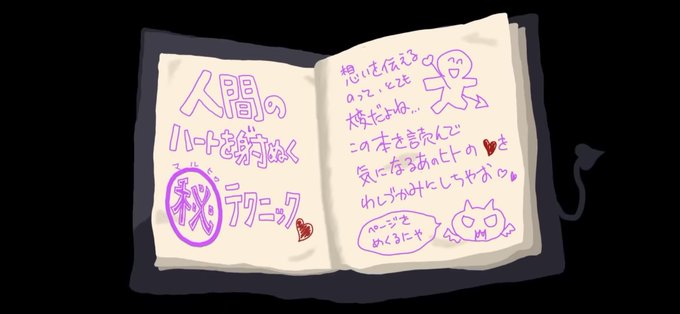 人間の
ハートを射ぬく
マルヒ
㊙テクニック
想いを伝える
のって、とても
大変だよね…
この本を読んで
気になるあのヒトの♥を
わしづかみにしちゃお♡
ページを
めくるにゃ